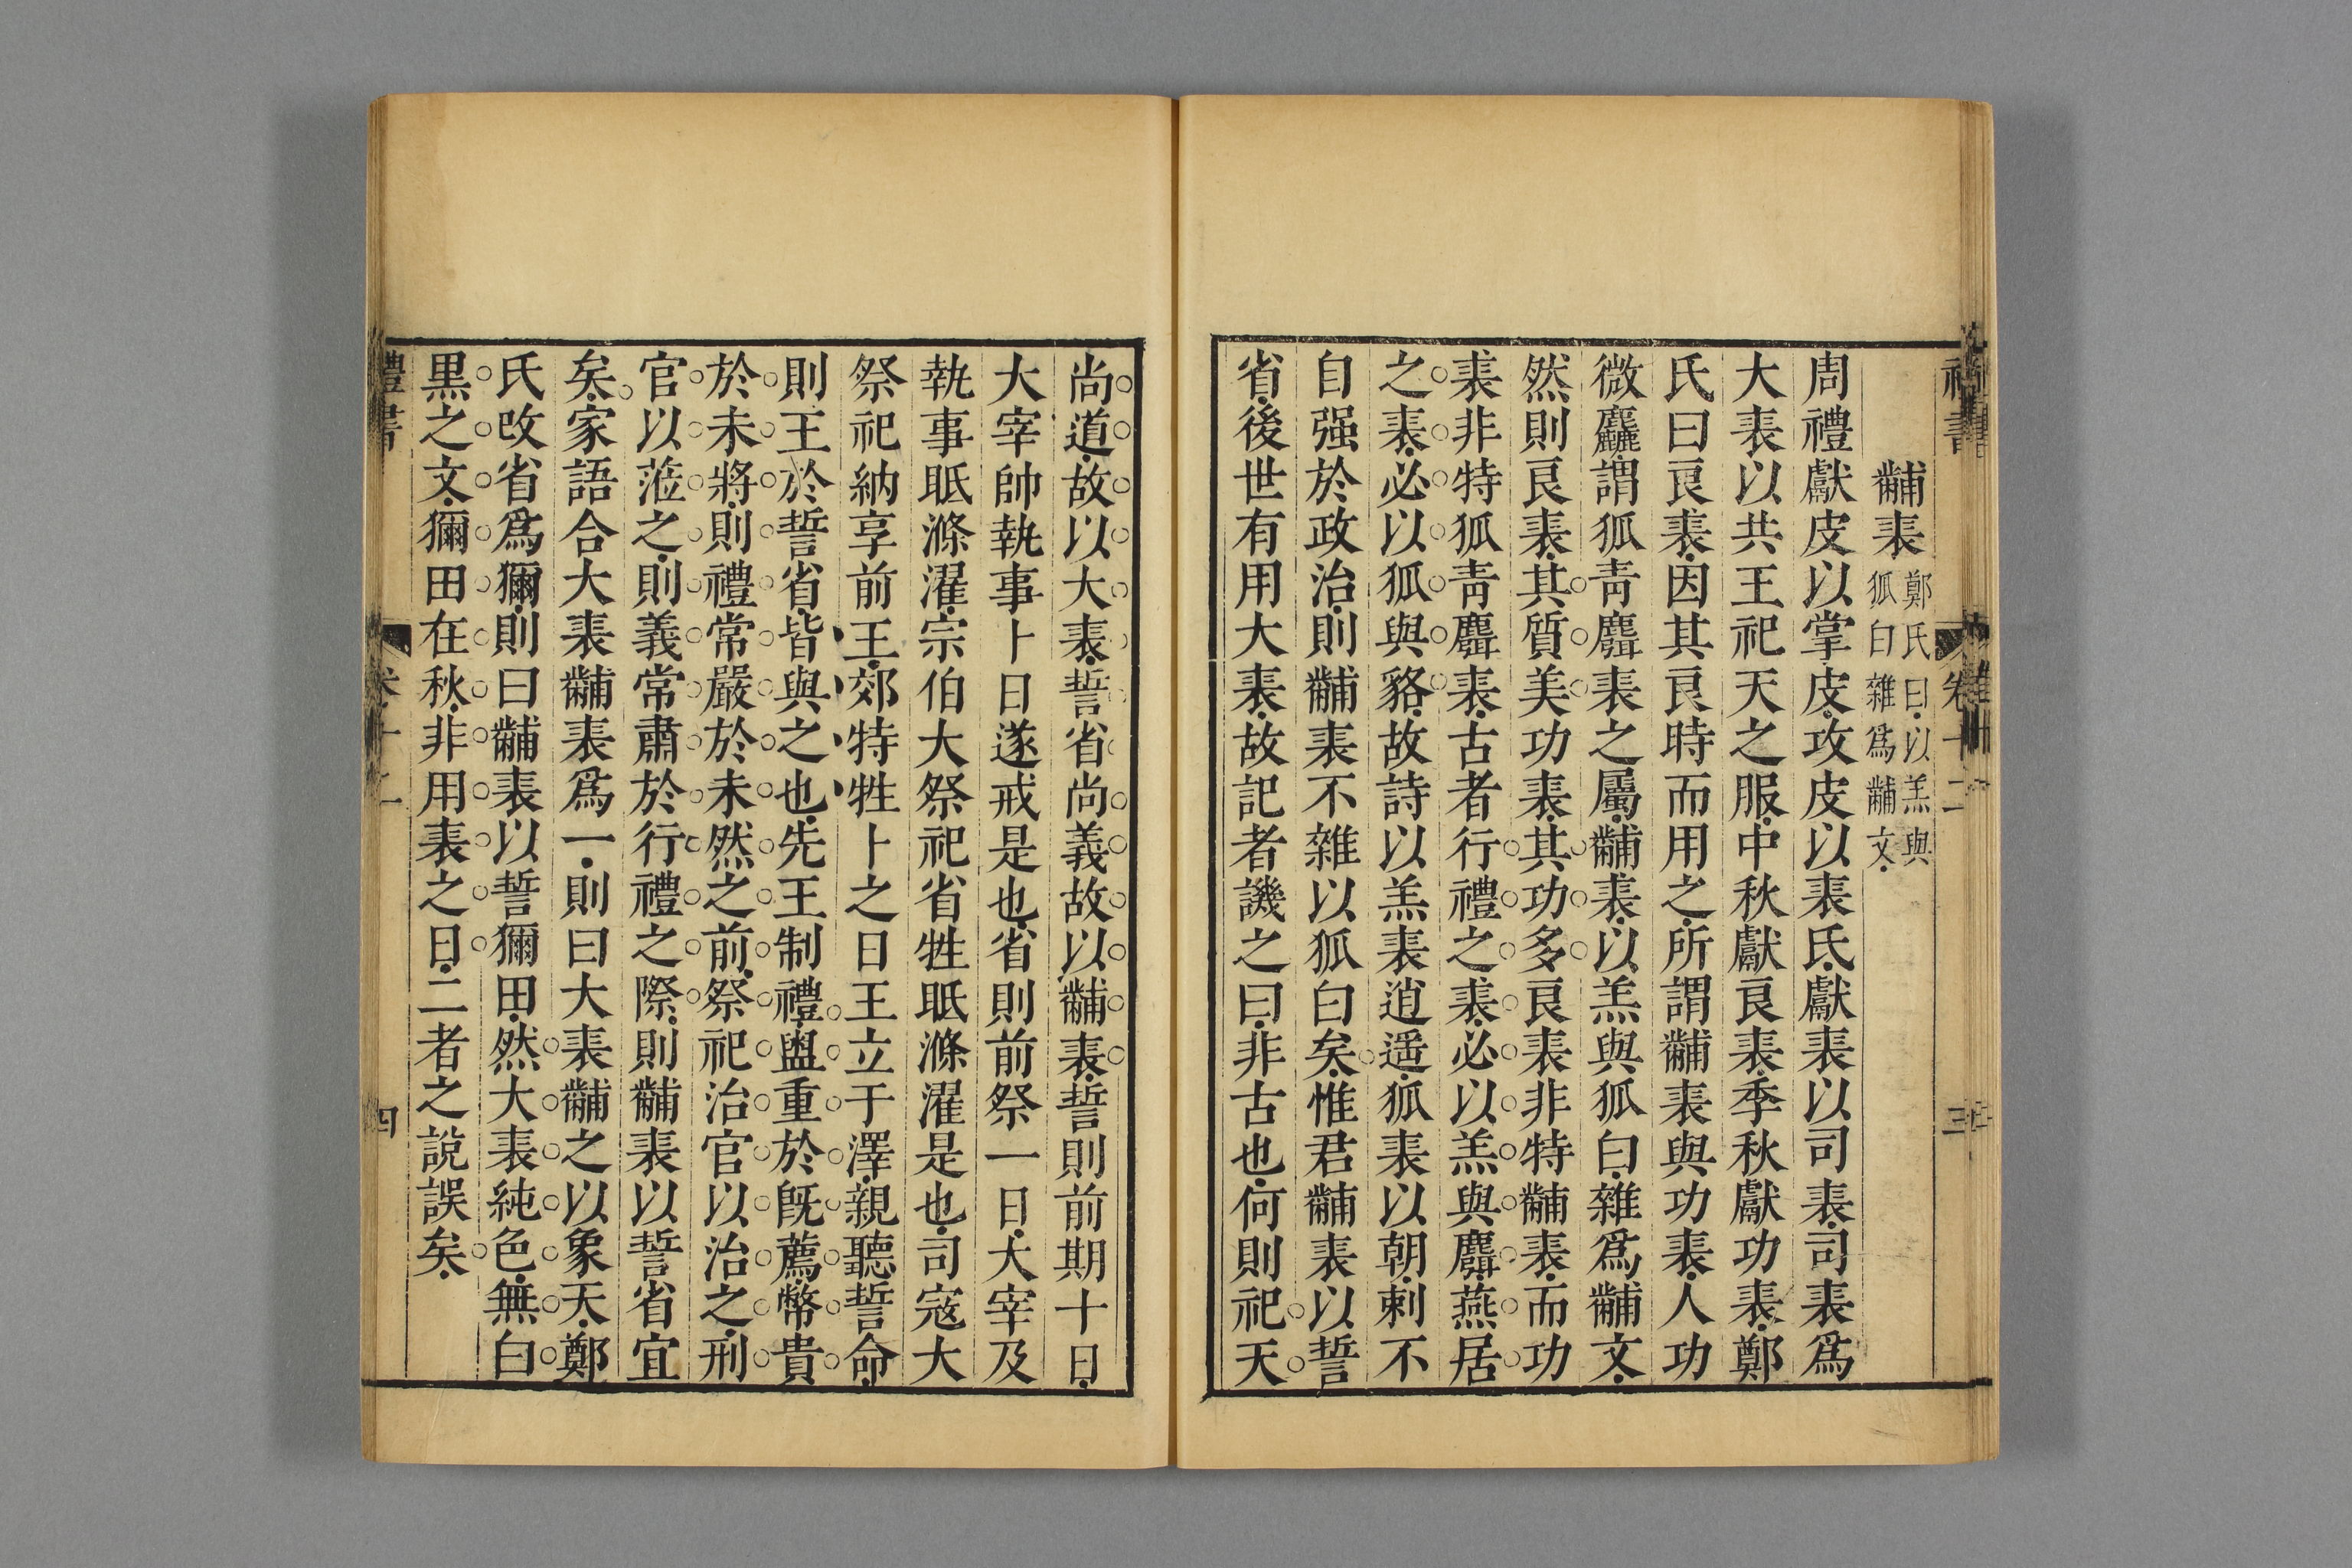 黼裘
鄭氏曰以羔與
狐白雜爲黼文
周禮獻皮以掌皮攻皮以裘氏獻裘以司裘司裘爲
大裘以共王祀天之服中秋獻良裘季秋獻功裘鄭
氏曰良裘因其良時而用之所謂黼裘與功裘人功
微麤謂狐靑麛裘之屬黼裘以羔與狐白雜爲黼文
然則良裘其質美功裘其功多良裘非特黼裘而功
裘非特狐靑麛裘古者行禮之裘必以羔與麛燕居
之裘必以狐與貉故詩以羔裘逍遥狐裘以朝刺不
自强於政治則黼裘不雜以狐白矣惟君黼裘以誓
省後世有用大裘故記者譏之曰非古也何則祀天
尚道故以大裘誓省尚義故以黼裘誓則前期十日
大宰帥執事卜日遂戒是也省則前祭一日大宰及
執事眂滌濯宗伯大祭祀省牲眂滌濯是也司寇大
祭祀納享前王郊特牲卜之日王立于澤親聽誓命
則王於誓省皆與之也先王制禮盥重於旣薦幣貴
於未將則禮常嚴於未然之前祭祀治官以治之刑
官以蒞之則義常肅於行禮之際則黼裘以誓省宜
矣家語合大裘黼裘爲一則曰大裘黼之以象天鄭
氏改省爲獮則曰黼裘以誓獮田然大裘純色無白
黒之文獮田在秋非用裘之日二者之說誤矣
卷十二
四